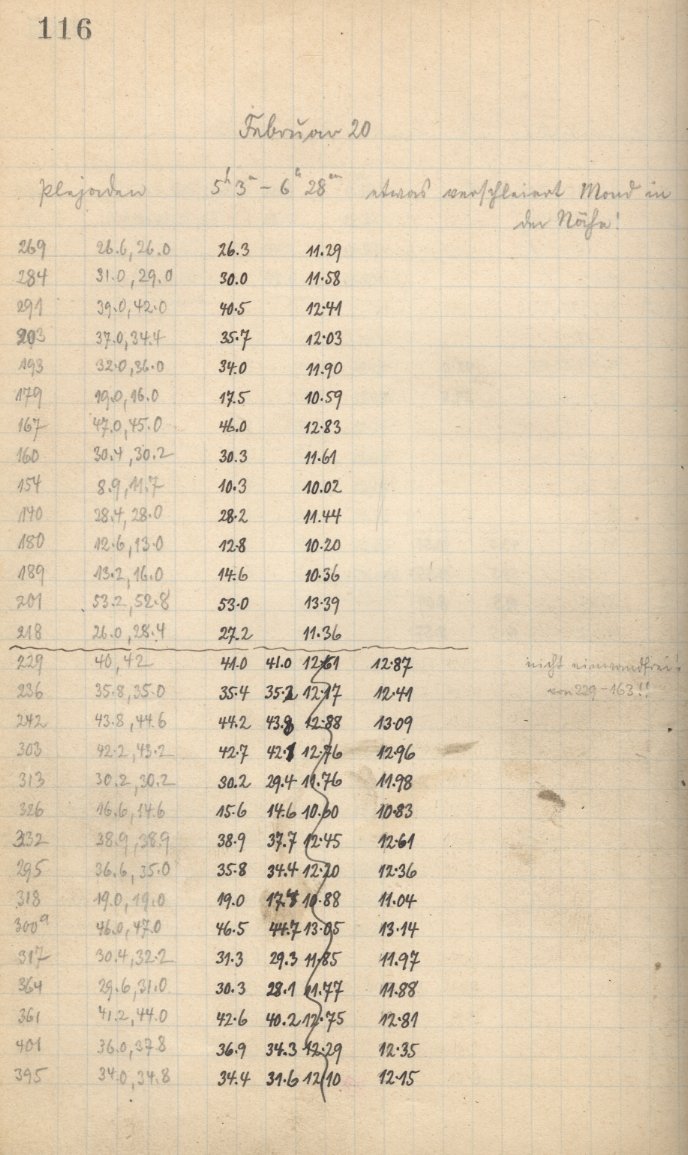 116
Februar 20
Plejaden 5h 3m - 6h 28m etwas verschleiert Mond in
der Nähe!
269 26.6, 26.0 26.3 11.29
284 31.0, 29.0 30.0 11.58
291 39.0, 42.0 40.5 12.41
203 37.0, 34.4 35.7 12.03
193 32.0, 36.0 34.0 11.90
179 19.0, 16.0 17.5 10.59
167 47.0, 45.0 46.0 12.83
160 30.4, 30.2 30.3 11.61
154 8.9, 11.7 10.3 10.02
140 28.4, 28.0 28.2 11.44
180 12.6, 13.0 12.8 10.20
189 13.2, 16.0 14.6 10.36
201 53.2, 52.8 53.0 13.39
218 26.0, 28.4 27.2 11.36
229 40, 42 41.0 41.0 12.61 12.87 nicht einwandfrei!
236 35.8, 35.0 35.4 35.2 12.17 12.41 von 229-163!!
242 43.8, 44.6 44.2 43.8 12.88 13.09
303 42.2, 43.2 42.7 42.1 12.76 12.96
313 30.2, 30.2 30.2 29.4 11.76 11.98
326 16.6, 14.6 15.6 14.6 10.60 10.83
332 38.9, 38.9 38.9 37.7 12.45 12.61
295 36.6, 35.0 35.8 34.4 12.20 12.36
318 19.0, 19.0 19.0 10.88 11.04
300a 46.0, 47.0 46.5 44.7 13.05 13.14
317 30.4, 32.2 31.3 29.3 11.85 11.97
364 29.6, 31.0 30.3 28.1 11.77 11.88
361 41.2, 44.0 42.6 40.2 12.75 12.81
401 36.0, 37.8 36.9 34.3 12.29 12.35
395 34.0, 34.8 34.4 31.6 12.10 12.15